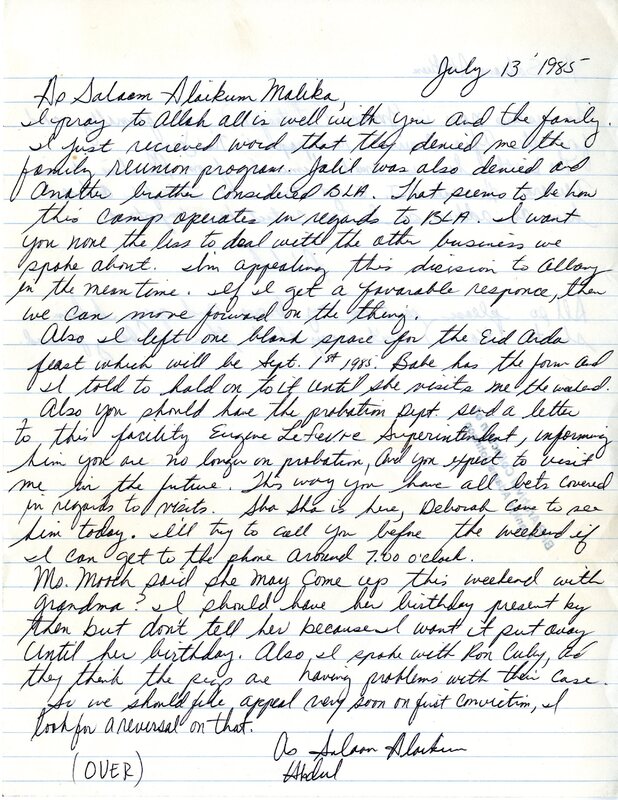 July 13 1985
As Salaam Alaikum Malika,
I pray to Allah all is well with you and the family.
I just recieved word that they denied me the
family reunion program. Jalil was also denied and
another brother considered BLA. That seems to be how
this camp operates in regards to BLA. I want
you none the less to deal with the other business we
spoke about. I'm appealing this dicision to Albany
in the mean time. If I get a favorable responce, then
we can move forward on the thing.
Also I left one blank space for the Eid Arda
feast which will be Sept. 1st 1985. Babe has the form and
I told to hold on to it until she visits me the weekend.
Also you should have the probation Dept. send a letter
to this facility Eugene LeFevre Superintendent, informing
him you are no longer on probation, and you expect to visit
me in the future. This way you have all bets covered
in regards to visits. Sha Sha is here, Deborah came to see
him today. I'll try to call you before the weekend if
I can get to the phone around 7:00 o'clock.
Ms. Mooch said she may come up this weekend with
grandma? I should have her birthday present by
then but don't tell her because I want it put away
until her birthday. Also, I spoke with Ron Cuby, and
they think the are having problems with their case.
So we should file appeal very soon on first conviction, I
look for a reversal on that.
As Salaam Alaikum
Abdul
(OVER)